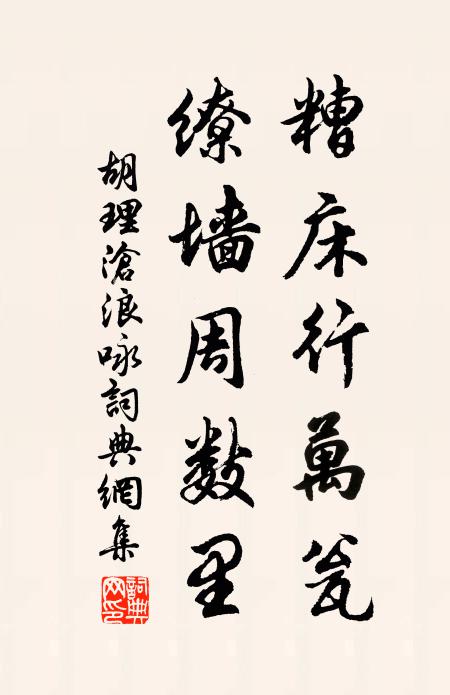 糟床行萬瓮
繚墙周数里
胡理滄浪咏詞典網集
詞典网印